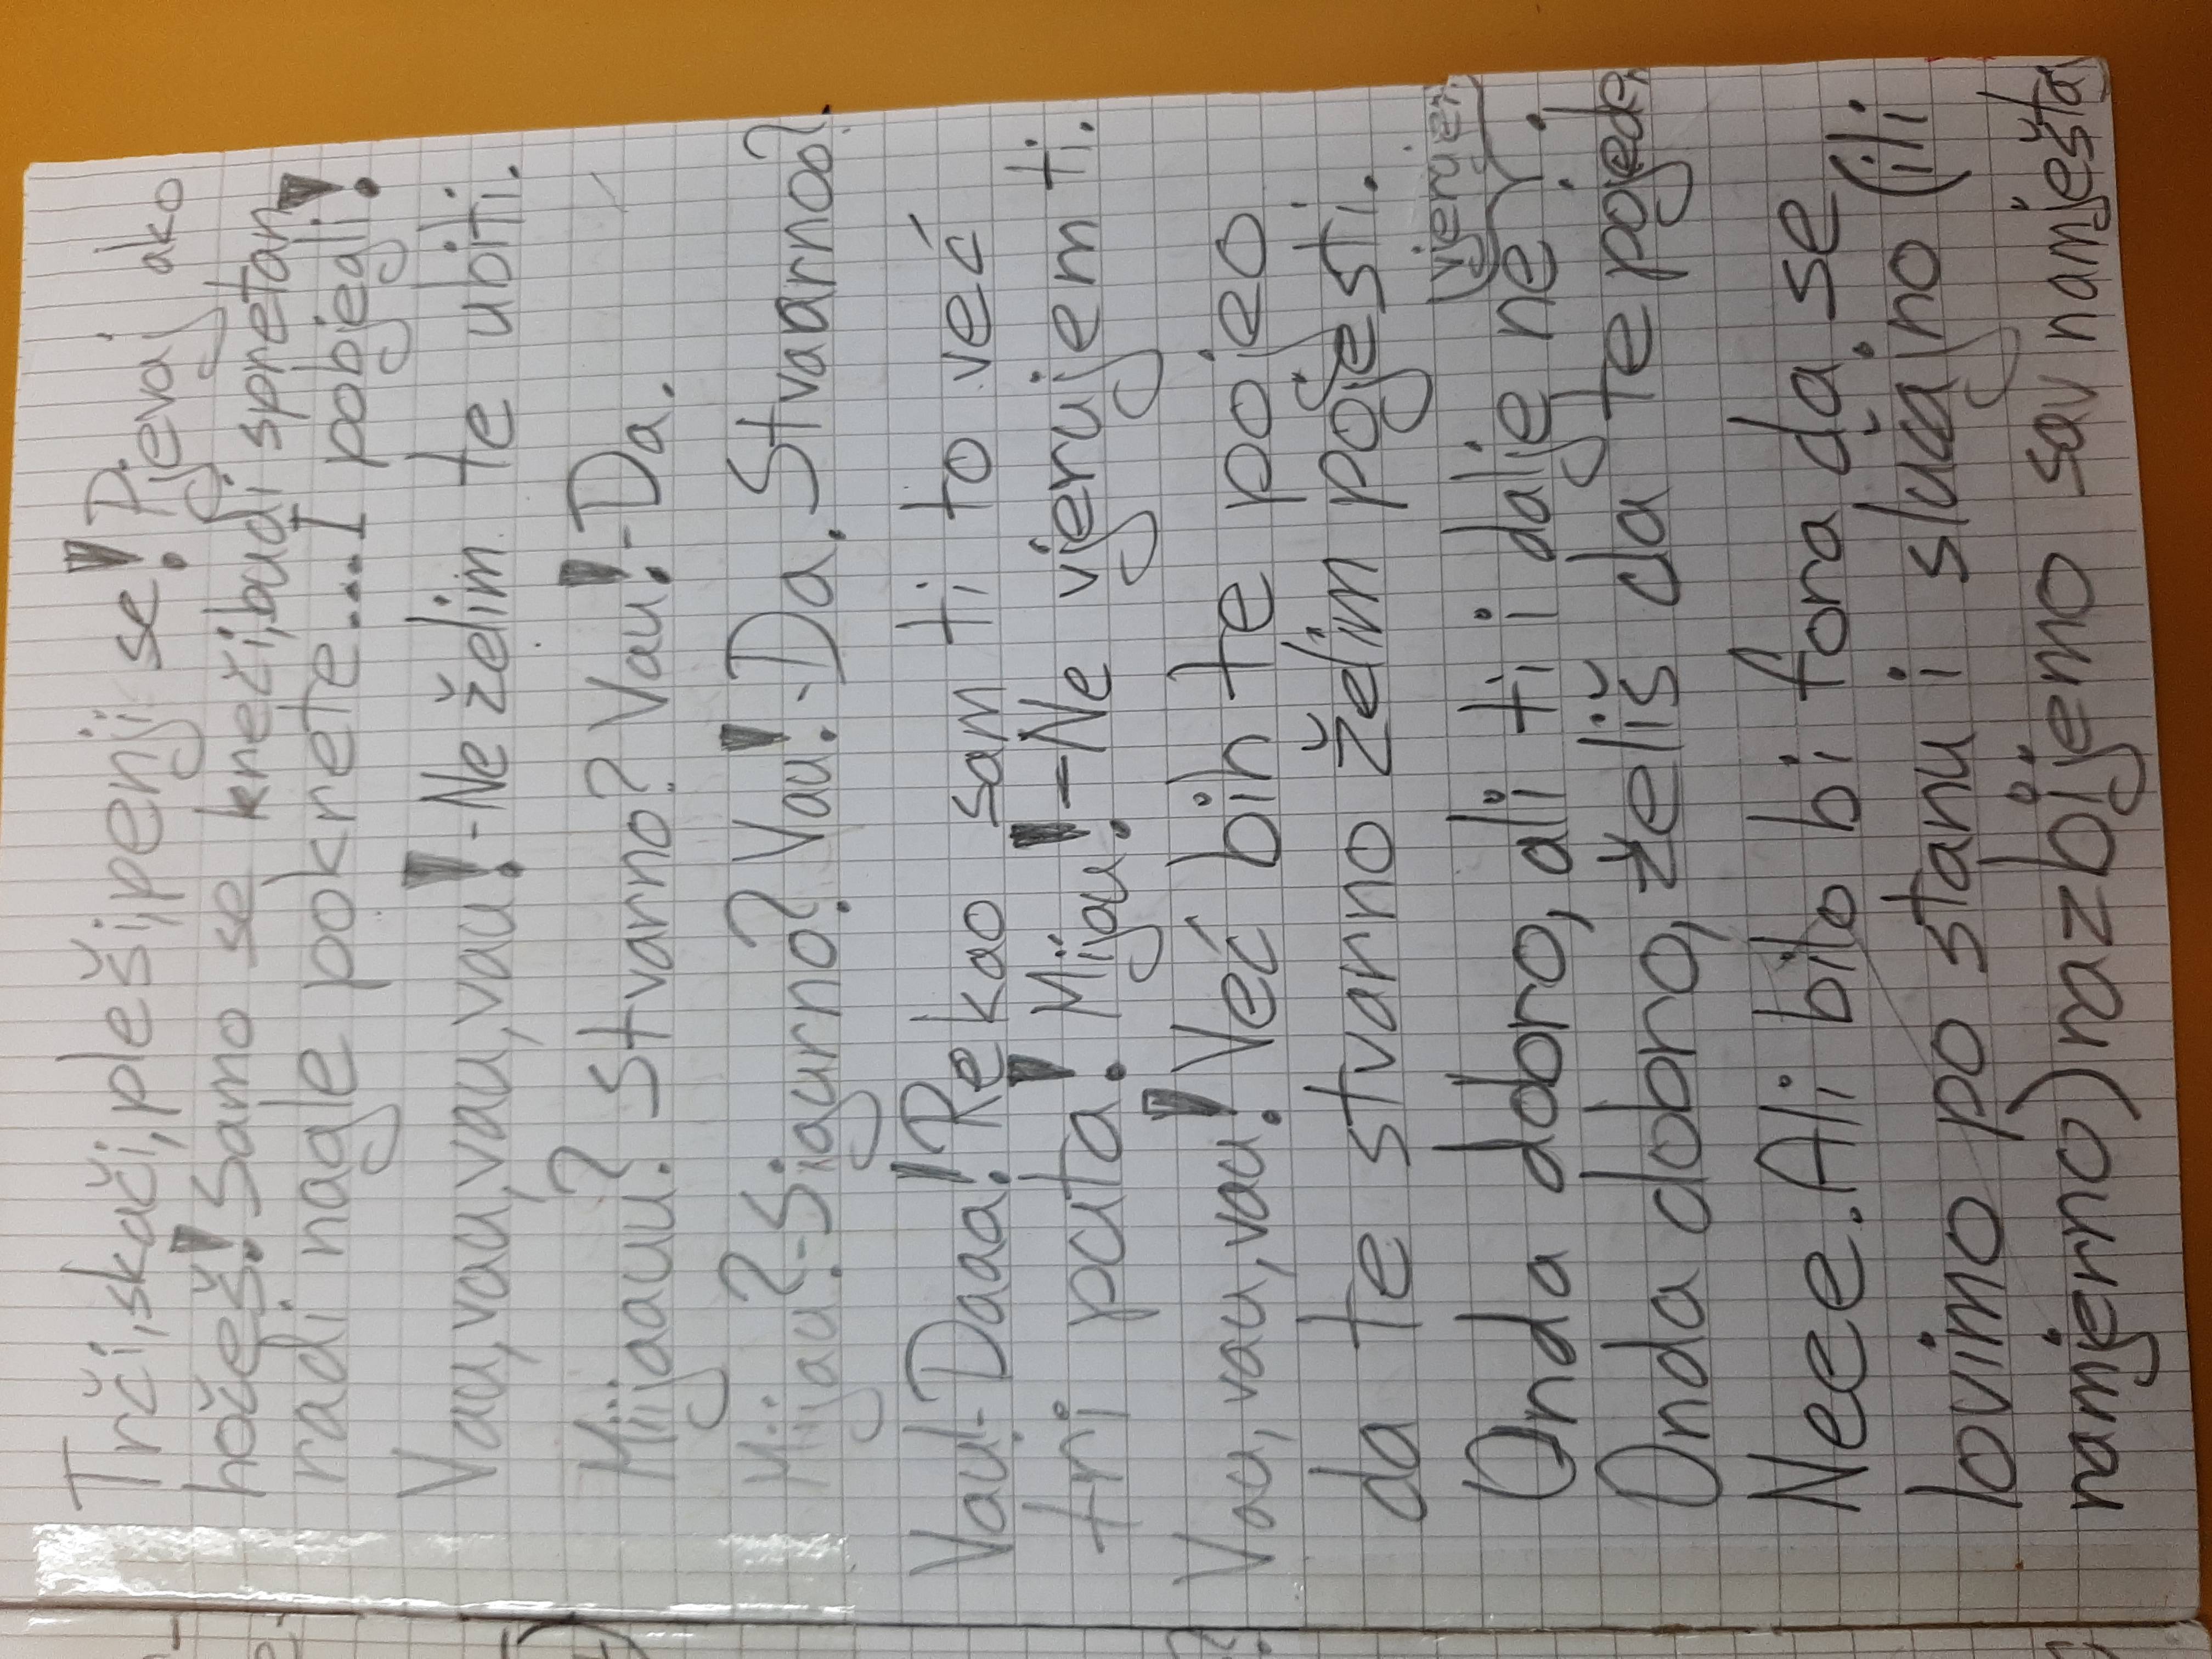 Trči, skači, pleši, penji se! Pjevaj ako
hočeš! Samo se kneži, budi spretan
radi nagle pokrete....I pobjegli!
Vau, vau, vau, vau, vau!-Ne želim te ubiti.
Mijaauu? Stvarno? Vau!-Da.
Mijau?-Sigurno? Vau!-Da. Stvaarnoo?
Vau!-Daaa! Rekao sam ti to već
tri puta! Mijau!-Ne vjerujem ti.
Vau, vau, vau! Već bih te pojeo
da te stvarno želim pojesti.
vjerujem
Onda dobro, ali ti i dalje ne
Onda dobro, želiš da te pojedem
Nee. Ali bilo bi fora da se
lovimo po stanu i slučajno (ili
namjerno) razbijemo sav namještaj